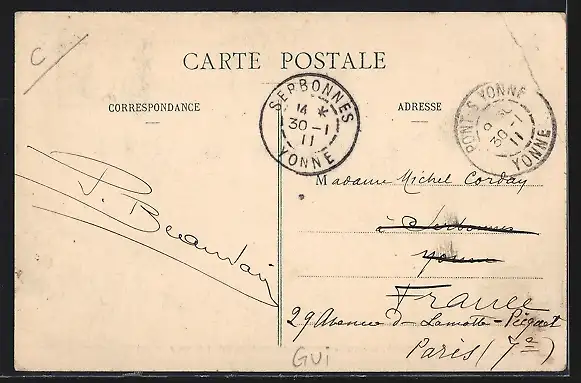 C
CARTE POSTALE
CORRESPONDANCE
ADRESSE
SERBONNES
14 *
30-1
11
YONNE
PONT-S-YONNE
30-1
11
YONNE
Madame Michel Corday
à Serbonnes
Yonne
France
29 Avenue d- Lamotte-Picquet
Paris (7e)
P. Beaudain
GUI